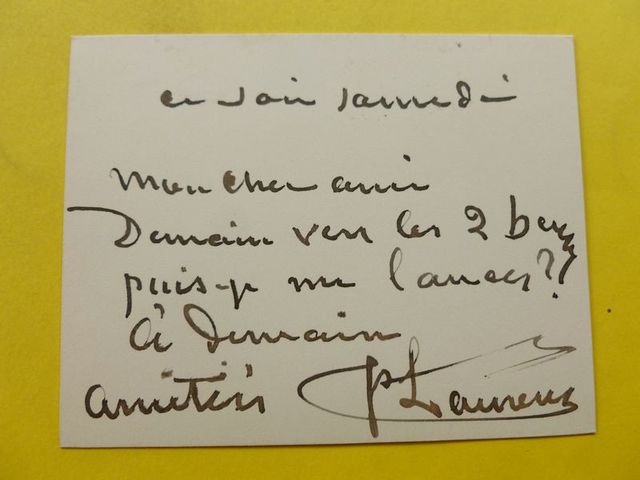 ce soir samedi
Mon cher ami
Demain vers les 2 h
puis-je me lancer??
à demain
amitiés PLaurens